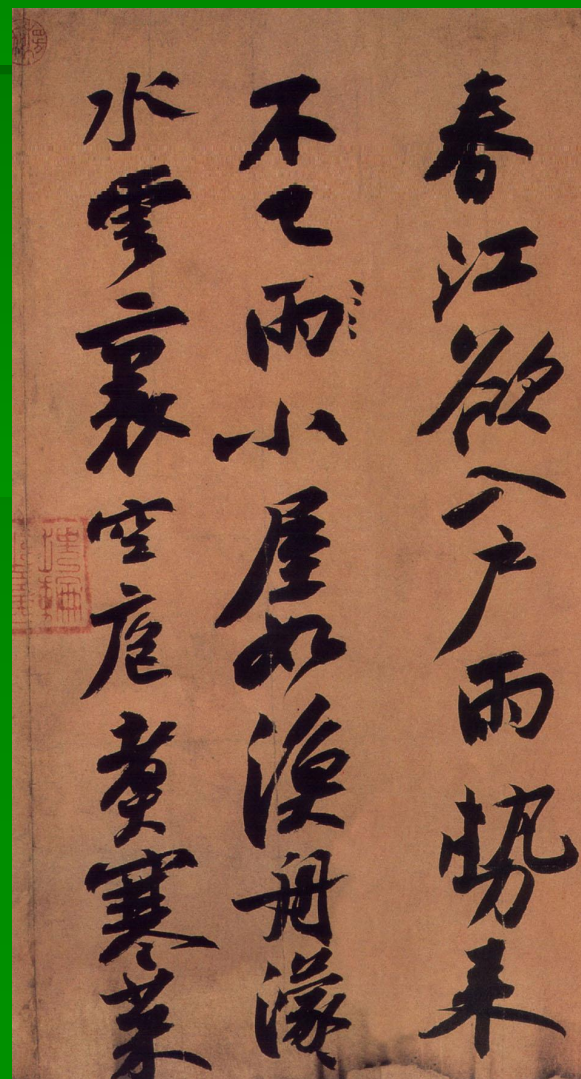 春江欲入戶雨勢来
不已雨小屋如漁舟濛
水雲裏空庖煑寒菜